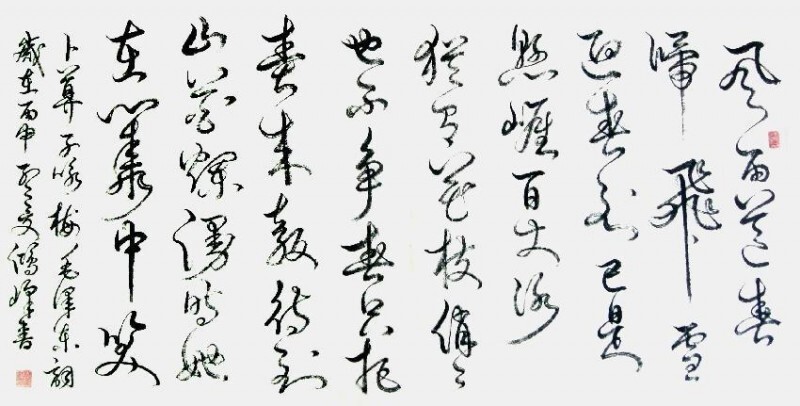 风雨送春
歸飛雪
迎春到已是
懸崖百丈冰
猶有花枝俏々
也不争春只把
春来報待到
山花爛漫时她
在叢中笑
卜算子咏梅毛泽东詞
歲在丙申峰書